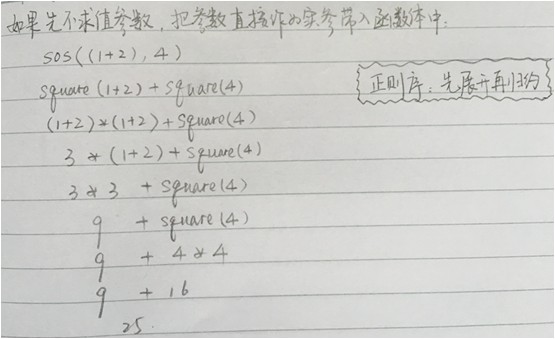 如果先不求值参数，把参数直接作为实参带入函数体中.
sos((1+2),4)
square(1+2)+square(4)
正则序：先展开再归约
(1+2)*(1+2)+square(4)
3*(1+2)+square(4)
3*3 +square(4)
9 +square(4)
9 + 4*4
9 + 16
25.